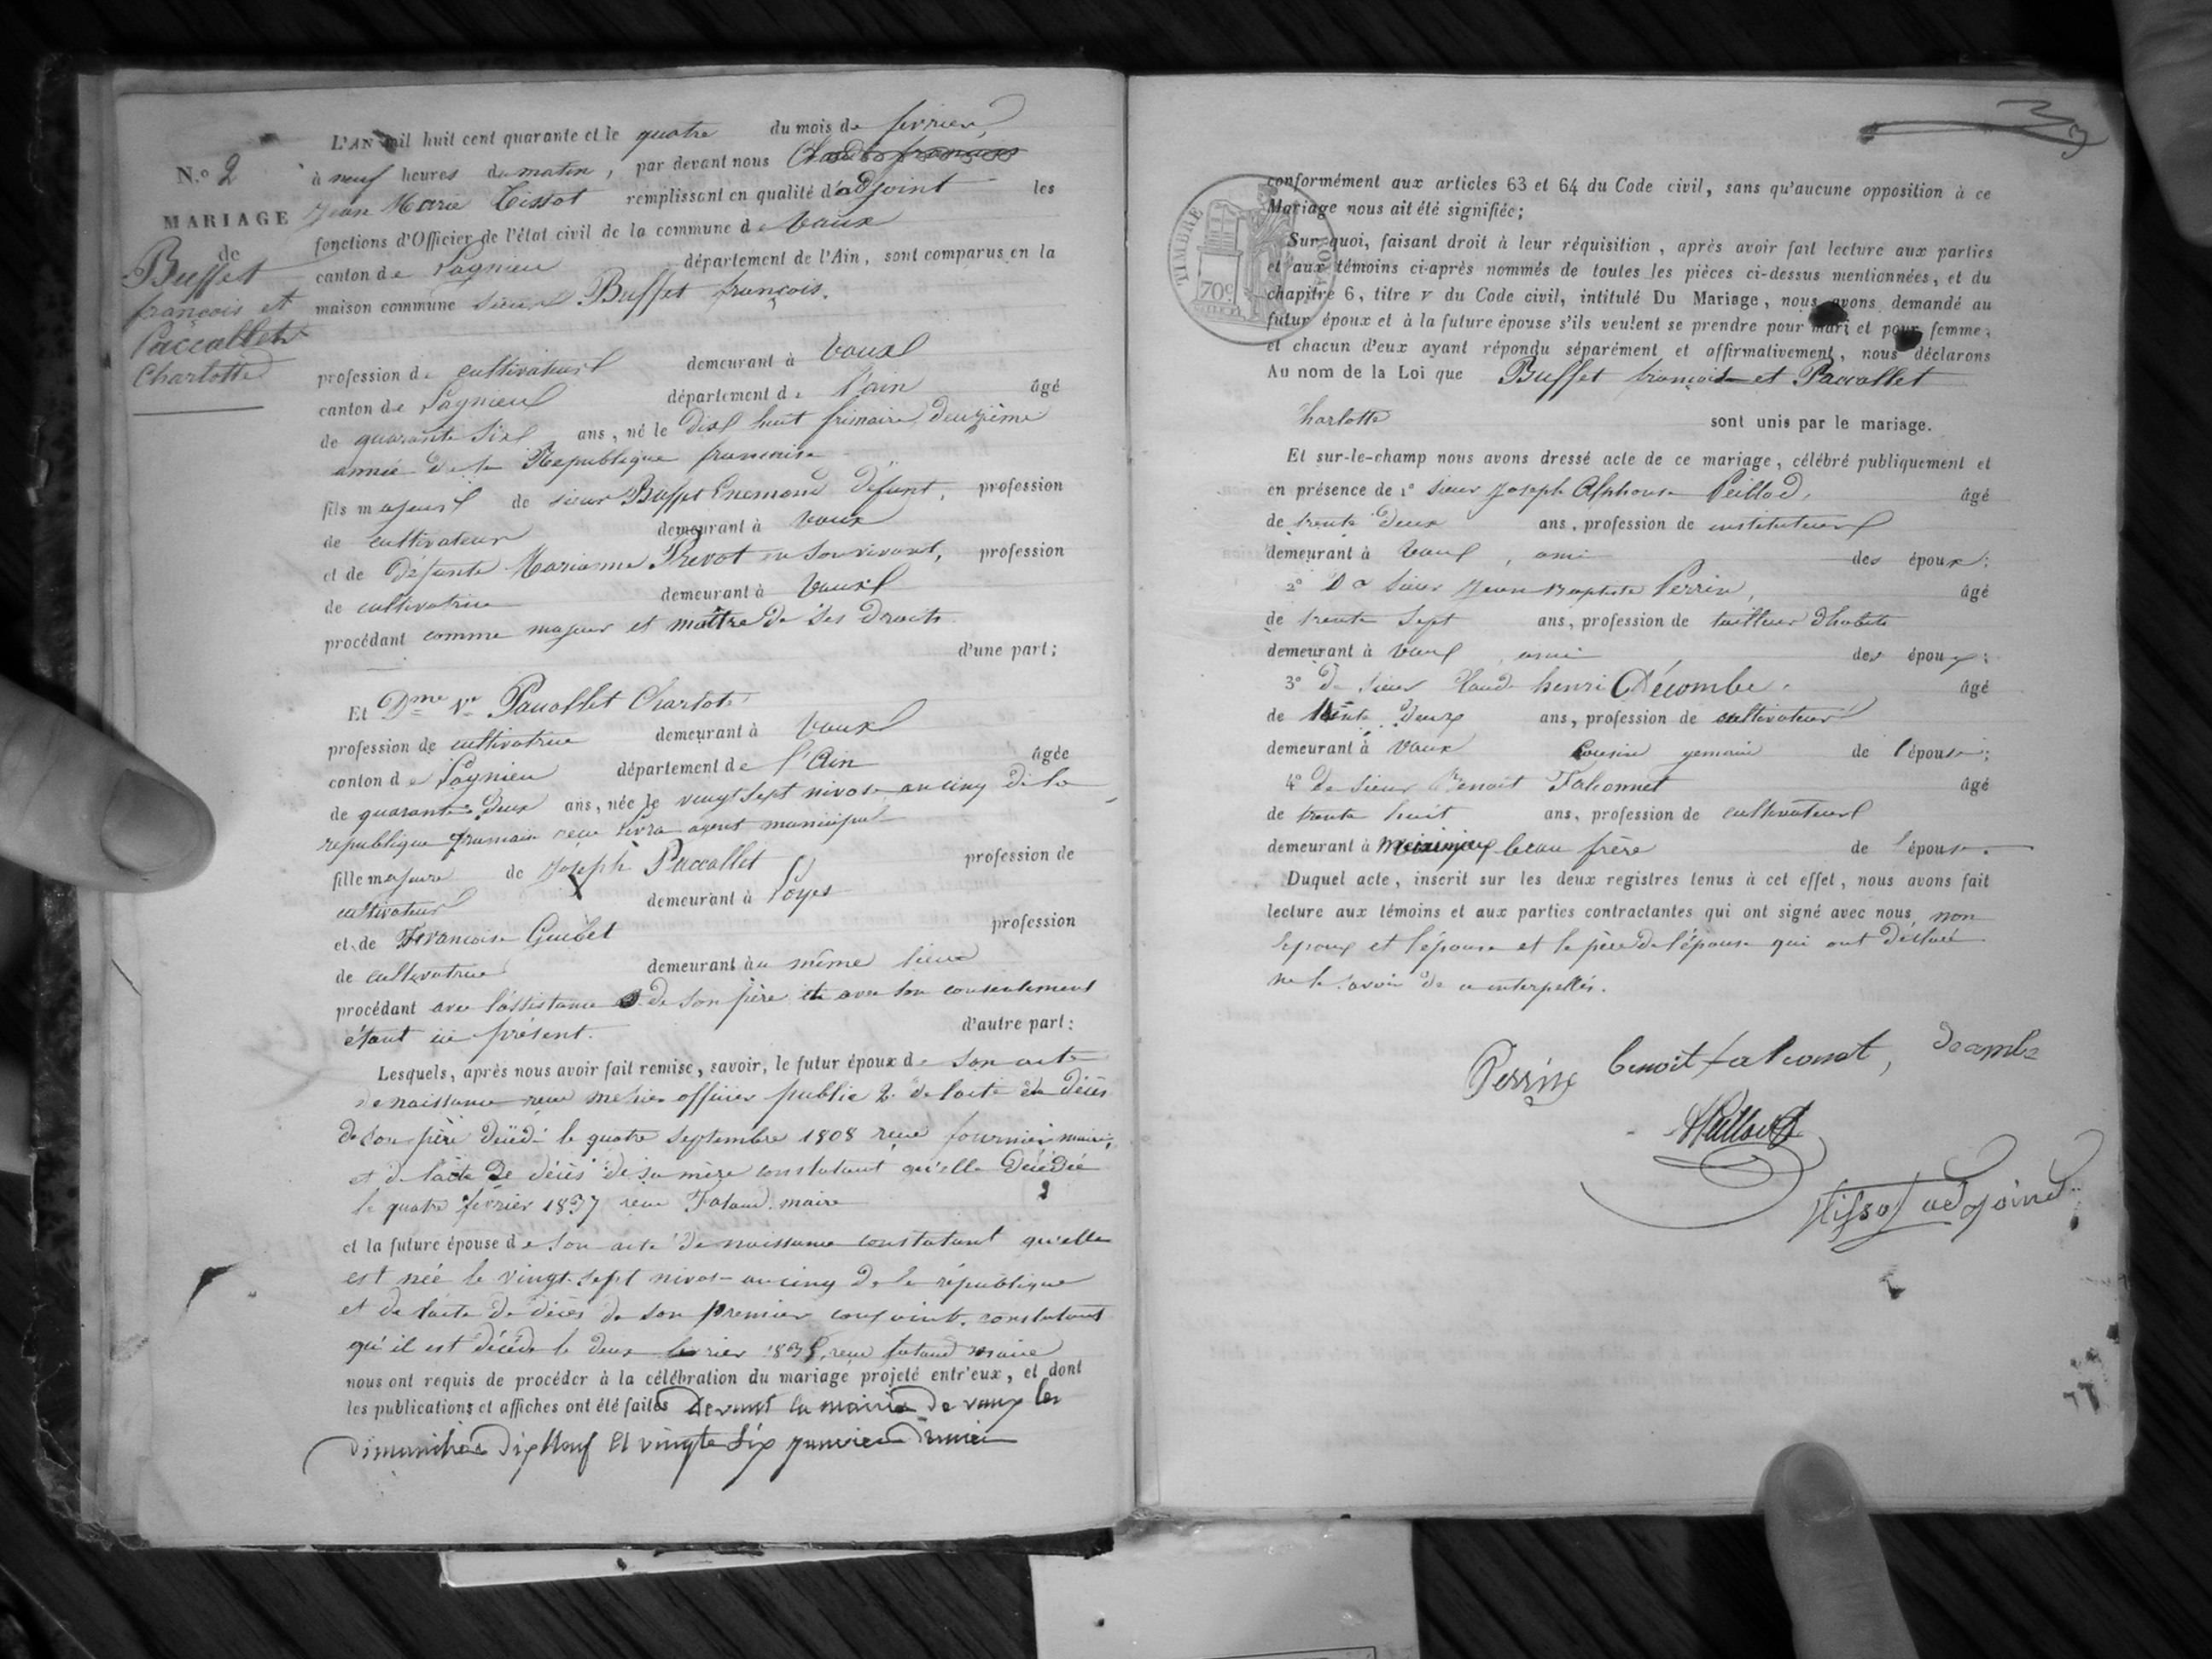 N.º 2
MARIAGE
de
Buffet
françois et
Paccallet
Charlotte
L'AN mil huit cent quarante et le quatre du mois de fevrier,
à neuf heures du matin, par devant nous
Jean Marie Tissot remplissant en qualité d'adjoint les
fonctions d'Officier de l'état civil de la commune de Vaux
canton de Lagnieu département de l'Ain, sont comparus en la
maison commune sieur Buffet françois.
profession de cultivateur demeurant à Vaux
canton de Lagnieu département de l'ain âgé
de quarante six ans, né le dix huit frimaire deuzième
année de la Republique francaise
fils majeur de sieur Buffet Enemond défunt, profession
de cultivateur demeurant à Vaux
et de defunte Marianne Prevot en son vivant, profession
de cultivatrice demeurant à Vaux
procédant comme majeur et maître de ses droits
d'une part;
Et Dme Ve Paccallet Charlote
profession de cultivatrice demeurant à Vaux
canton de Lagnieu département de l'Ain âgée
de quarante deux ans, née le vingt sept nivose an cinq de la
republique francaise reçu agent municipal
fille majeure de Joseph Paccallet profession de
cultivateur demeurant à Loyes
et de Francoise Guibet profession
de cultivatrice demeurant au même lieu
procédant avec l'assistance de son père et avec son consentement
étant ici présent. d'autre part:
Lesquels, après nous avoir fait remise, savoir, le futur époux de son acte
de naissance reçu officier public 2. de l'acte de décès
de son père décédé le quatre septembre 1808 reçu fournier maire,
et de l'acte de décès de sa mère constatant qu'elle décédée
le quatre fevrier 1837 reçu Faland maire
et la future épouse de son acte de naissance constatant qu'elle
est née le vingt-sept nivose an cinq de la république
et de l'acte de décès de son premier conjoint, constatant
qu'il est décédé le deux fevrier reçu faland maire
nous ont requis de procéder à la célébration du mariage projeté entr'eux, et dont
les publications et affiches ont été faites devant la mairie de vaux les
dimanches dix Neuf et vingte six janvier dernier
conformément aux articles 63 et 64 du Code civil, sans qu'aucune opposition à ce
Mariage nous ait été signifiée;
TIMBRE ROYAL
70c
Sur quoi, faisant droit à leur réquisition, après avoir fait lecture aux parties
et aux témoins ci-après nommés de toutes les pièces ci-dessus mentionnées, et du
chapitre 6, titre v du Code civil, intitulé Du Mariage, nous avons demandé au
futur époux et à la future épouse s'ils veulent se prendre pour mari et pour femme;
et chacun d'eux ayant répondu séparément et affirmativement, nous déclarons
Au nom de la Loi que Buffet françois et Paccallet
harlotte sont unis par le mariage.
Et sur-le-champ nous avons dressé acte de ce mariage, célébré publiquement et
en présence de 1º sieur Joseph Alphonse Peillod, âgé
de trente deux ans, profession de instituteur
demeurant à Vaux, ami des époux;
2º Do sieur Jean Baptiste Perrin, âgé
de trente sept ans, profession de tailleur d'habits
demeurant à Vaux, ami des époux;
3º de sieur Claude henri Décombe, âgé
de trente deux ans, profession de cultivateur
demeurant à Vaux cousin germain de l'épouse;
4º de sieur Benoit Falconnet âgé
de trente huit ans, profession de cultivateur
demeurant à beau frère de l'épouse.
Duquel acte, inscrit sur les deux registres tenus à cet effet, nous avons fait
lecture aux témoins et aux parties contractantes qui ont signé avec nous, non
l'epoux et l'épouse et le père de l'épouse qui ont déclaré
ne le savoir de ce interpellés.
Perrin benoit falconet, decombe
APeillod
Tissot adjoind